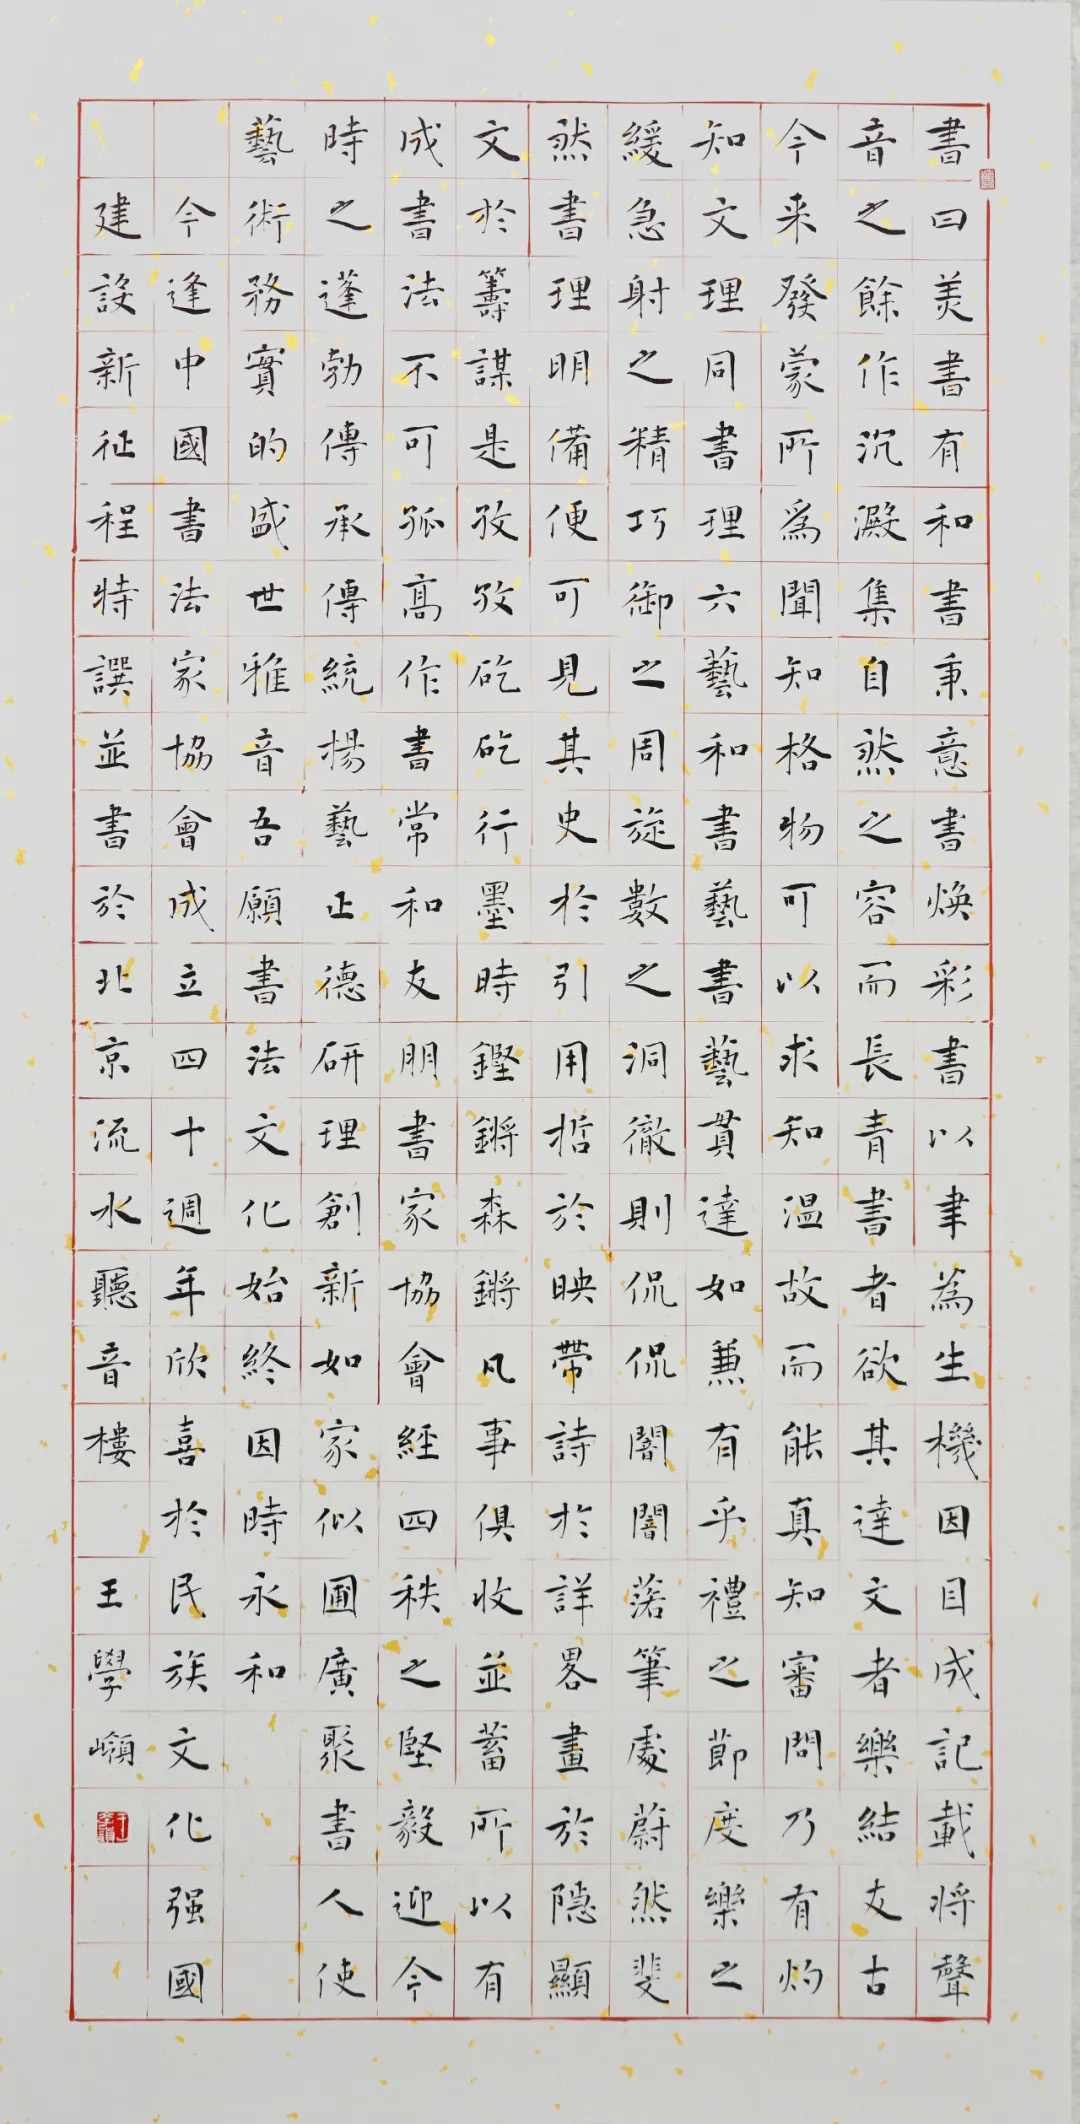 書曰美書有和書秉意書煥彩書以聿為生機因目成記載將聲
音之餘作沉澱集自然之容而長青書者欲其達文者樂結友古
今来發蒙所爲聞知格物可以求知温故而能真知審問乃有灼
知文理同書理六藝和書藝書藝貫達如兼有乎禮之節度樂之
緩急射之精巧御之周旋數之洞徹則侃侃闇闇落筆處蔚然斐
然書理明備便可見其史於引用哲於映帶詩於詳畧畫於隱顯
文於籌謀是孜孜矻矻行墨時鏗鏘森鏘凡事俱收並蓄所以有
成書法不可孤高作書常和友朋書家協會經四秩之堅毅迎今
時之蓬勃傳承傳統揚藝正德研理創新如家似圃廣聚書人使
藝術務實的盛世雅音吾願書法文化始終因時永和
今逢中國書法家協會成立四十週年欣喜於民族文化强國
建設新征程特譔並書於北京流水聽音樓 王學嶺